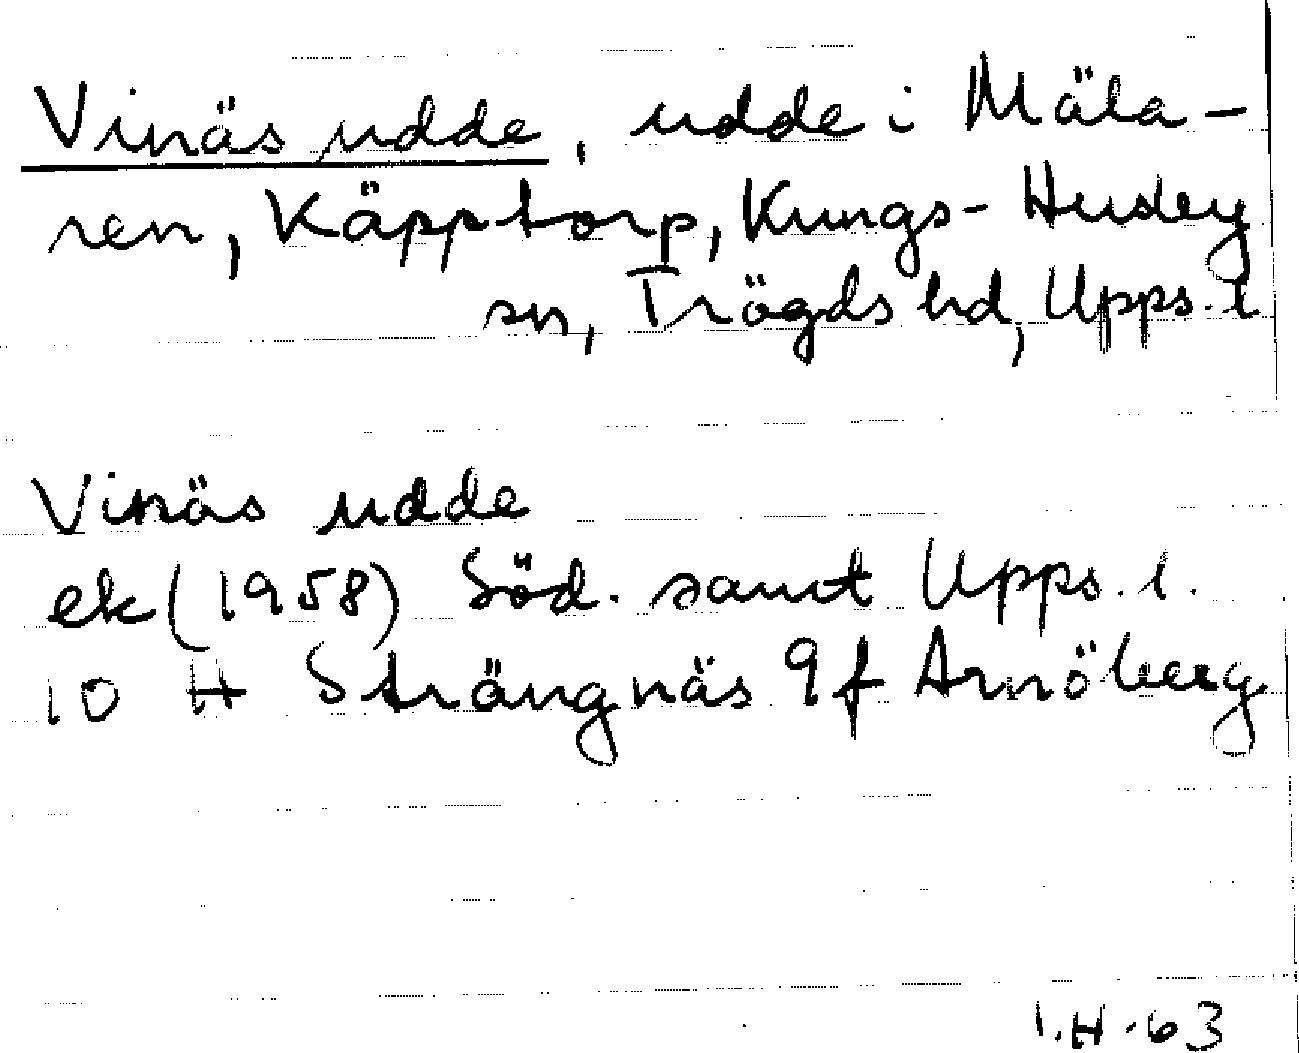 Vinäs udde, udde i Mäla-
ren, Käpptorp, Kungs-Husby
sn, Trögds hd, Upps. l
Vinäs udde
ek (1958) Söd. samt Upps. l.
10 H Strängnäs 9f Arnöberg
I.H. 63